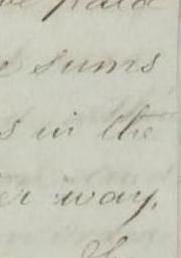 paid
sums
in the
way.